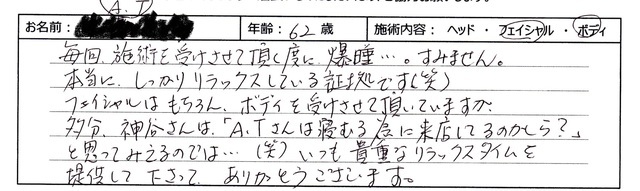 A.T
お名前: 年齢: 62 歳 施術内容: ヘッド・フェイシャル・ボディ
毎回、施術を受けさせて頂く度に、爆睡…。すみません。
本当に、しっかりリラックスしている証拠です(笑)
フェイシャルはもちろん、ボディを受けさせて頂いていますが、
多分、神谷さんは、「A.Tさんは寝むる為に来店してるのかしら?」
と思ってみえるのでは…(笑)いつも貴重なリラックスタイムを
提供して下さって、ありがとうございます。